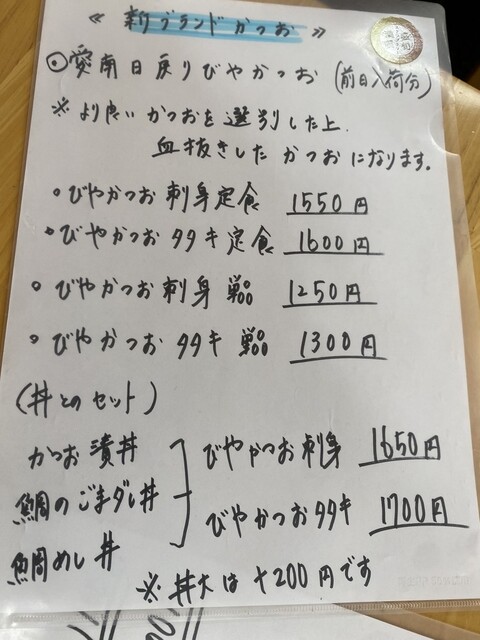 《新ブランドかつお》
◎愛南日戻りびやかつお（前日入荷分）
※より良いかつおを選別した上、
血抜きしたかつおになります。
・びやかつお刺身定食 1550円
・びやかつおタタキ定食 1600円
・びやかつお刺身 単品 1250円
・びやかつおタタキ 単品 1300円
（丼とのセット）
かつお漬丼
鯛のごまダレ丼
鯛めし丼
びやかつお刺身 1650円
びやかつおタタキ 1700円
※丼大は+200円です